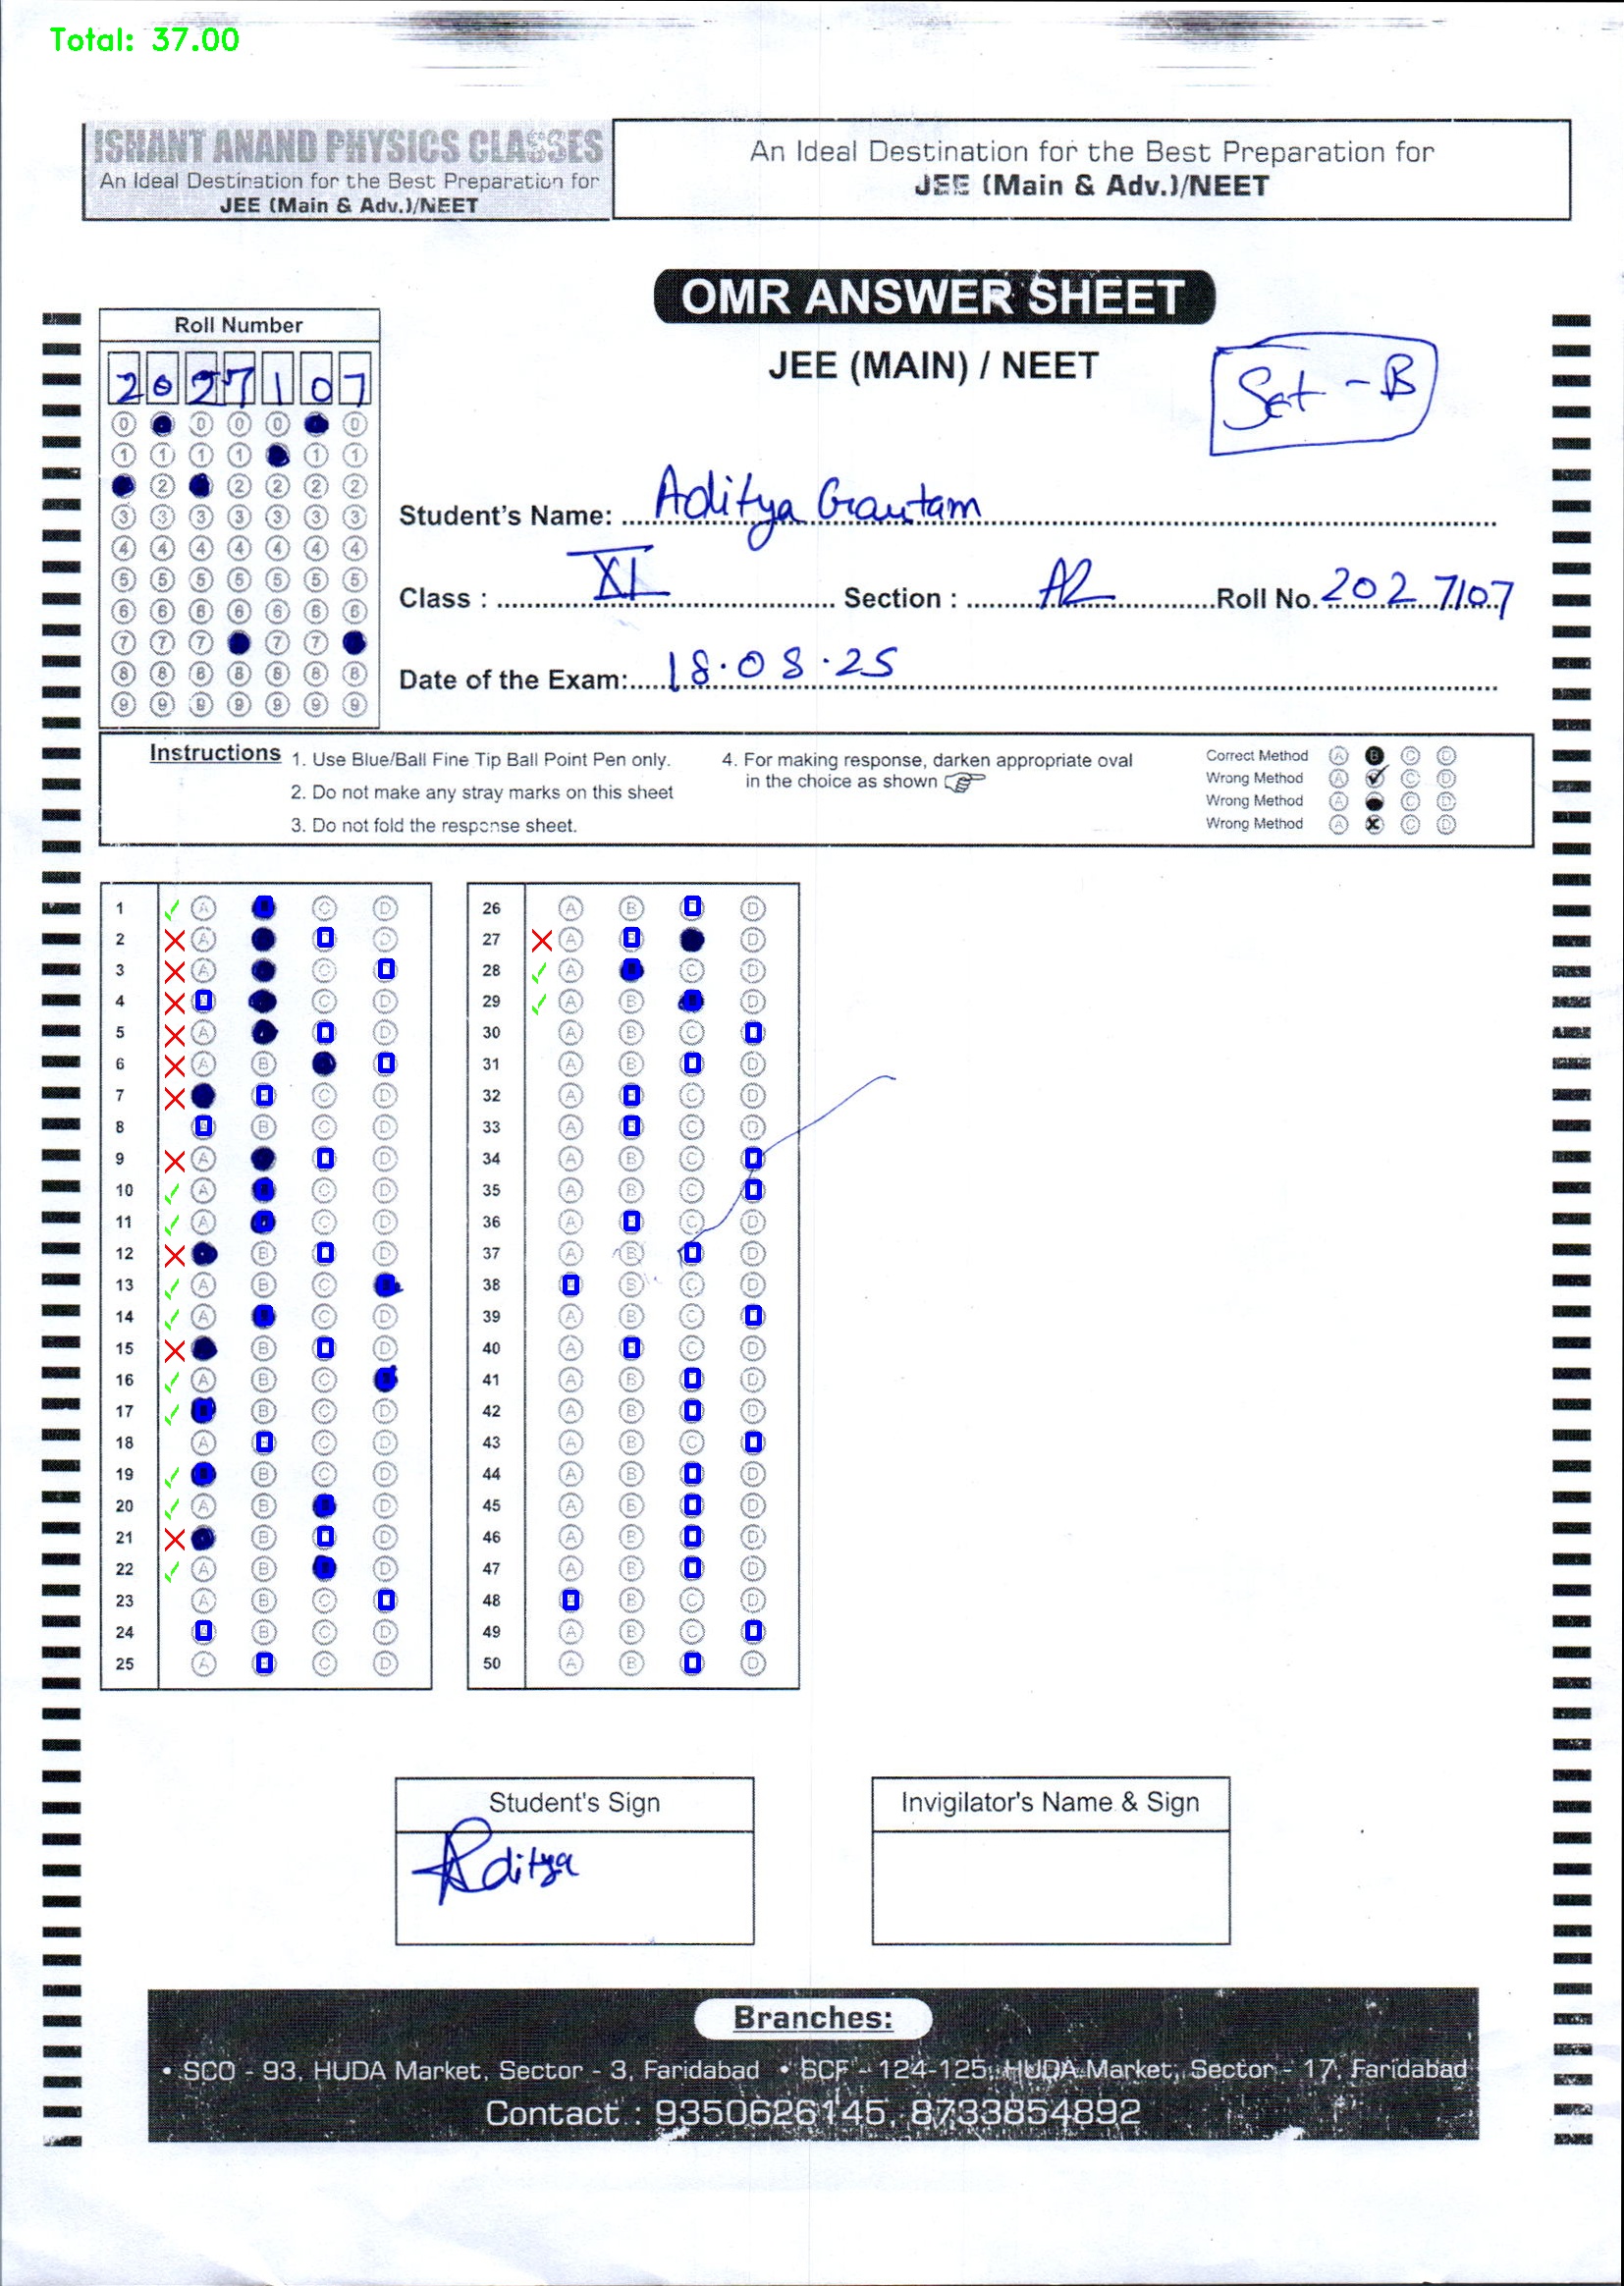 Total: 37.00
ISHANT ANAND PHYSICS CLASSES
An Ideal Destination for the Best Preparation for
JEE (Main & Adv.)/NEET
An Ideal Destination for the Best Preparation for
JEE (Main & Adv.)/NEET
OMR ANSWER SHEET
JEE (MAIN) / NEET
Set - B
Roll Number
2 0 2 7 1 0 7
0 0 0 0 0
1 1 1 1 1 1
2 2 2 2 2
3 3 3 3 3 3 3
4 4 4 4 4 4 4
5 5 5 5 5 5 5
6 6 6 6 6 6 6
7 7 7 7 7
8 8 8 8 8 8 8
9 9 9 9 9 9 9
Student's Name: Aditya Gautam
Class : XI Section : A2 Roll No. 2027107
Date of the Exam: 18.08.25
Instructions
1. Use Blue/Ball Fine Tip Ball Point Pen only.
2. Do not make any stray marks on this sheet
3. Do not fold the response sheet.
4. For making response, darken appropriate oval
in the choice as shown
Correct Method A B C D
Wrong Method A C D
Wrong Method A C D
Wrong Method A C D
1 A C D
2 A D
3 A C
4 C D
5 A D
6 A B
7 C D
8 B C D
9 A D
10 A C D
11 A C D
12 B D
13 A B C
14 A C D
15 B D
16 A B C
17 B C D
18 A C D
19 B C D
20 A B D
21 B D
22 A B D
23 A B C
24 B C D
25 A C D
26 A B D
27 A D
28 A C D
29 A B D
30 A B C
31 A B D
32 A C D
33 A C D
34 A B C
35 A B C
36 A C D
37 A B D
38 B C D
39 A B C
40 A C D
41 A B D
42 A B D
43 A B C
44 A B D
45 A B D
46 A B D
47 A B D
48 B C D
49 A B C
50 A B D
Student's Sign
Aditya
Invigilator's Name & Sign
Branches:
• SCO - 93, HUDA Market, Sector - 3, Faridabad • SCF - 124-125, HUDA Market, Sector - 17, Faridabad
Contact : 9350626145, 8733854892